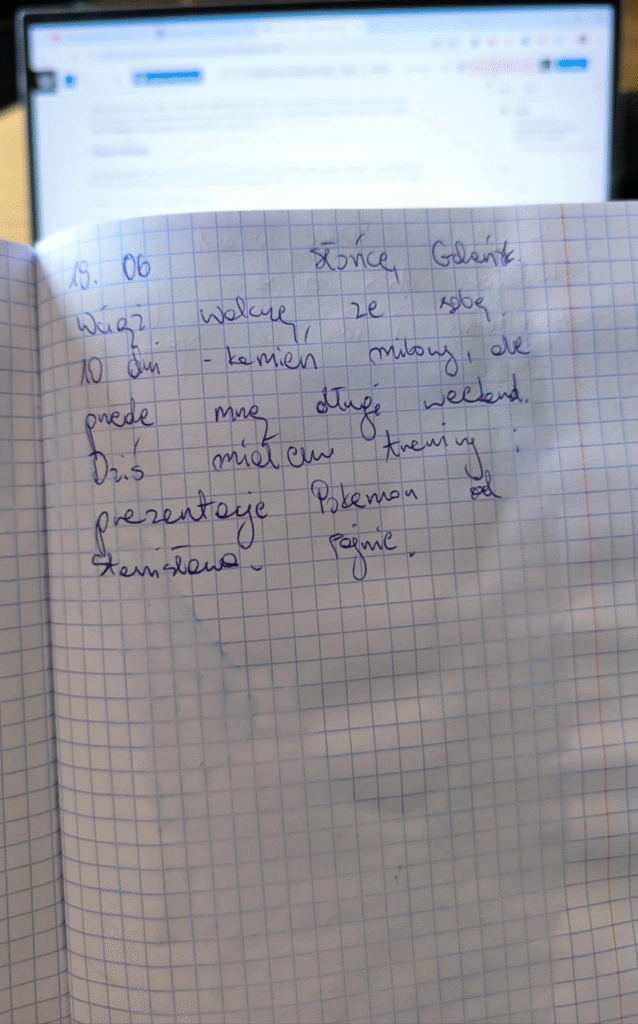 19. 06 słońce, Gdańsk.
Wciąż walczę, ze sobą.
10 dni - kamień milowy, ale
przede mną długi weekend.
Dziś miałem trening i
prezentację Pokemon od
Stanisława. Fajnie.